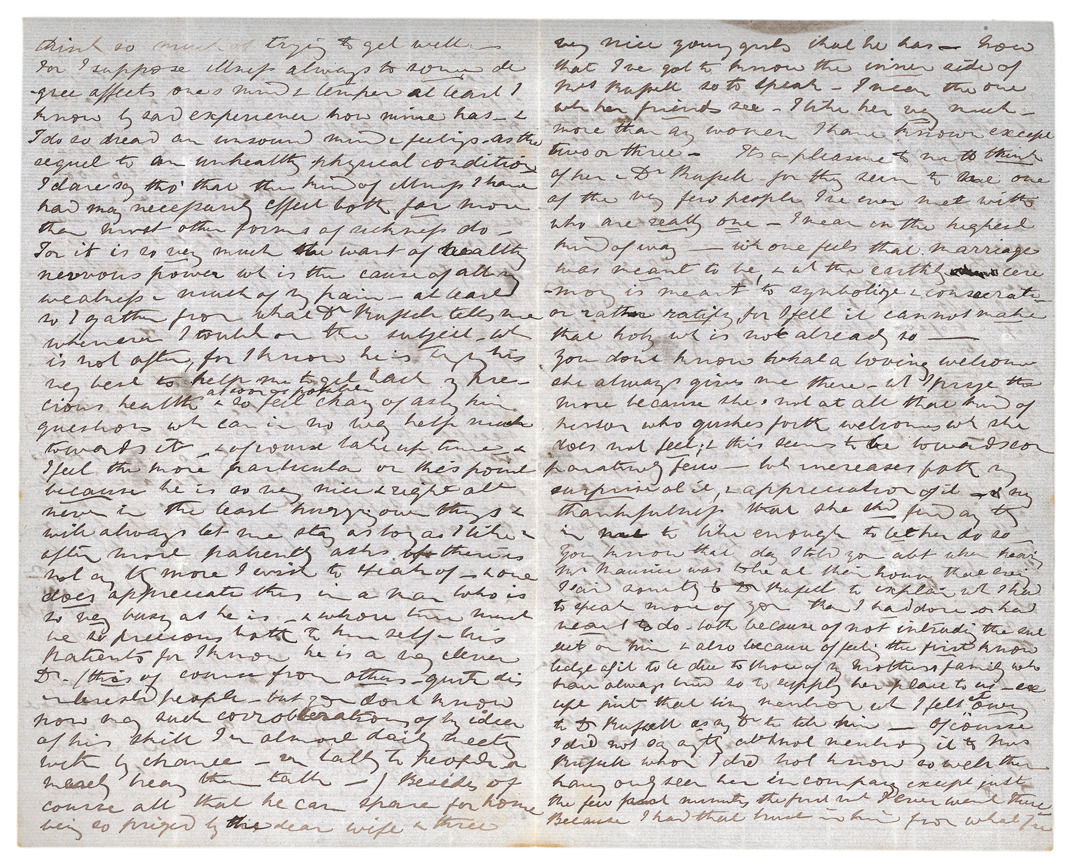 think so much of trying to get well —
For I suppose illness always to some de
gree affects one's mind & temper at least I
know by sad experience how mine has — &
I do so dread an unsound mind & feelings as the
sequel to an unhealthy physical condition
I dare say tho' that the kind of illness I have
had may necessarily effect both far more
than most other forms of sickness do —
For it is so very much the want of healthy
nervous power wh is the cause of all my
weakness & much of my pain — at least
so I gather from what Dr Russell tells me
whenever I touch on the subject — wh
is not often, for I know he is trying his
very best to help me to get back my pre-
cious health & so feel chary of asking him
questions wh can in no way help much
towards it — & of course take up time — &
I feel the more particular on this point
because he is so very nice & right all
never in the least hurrying over things &
will always let me stay as long as I like —
often most patiently asks if there is
not anything more I wish to speak of — & one
does appreciate this in a man who is
so very busy as he is — & whose time must
be so precious both to himself & his
patients for I know he is a very clever
Dr. (this of course from others — quite dis
interested people — but you don't know
how many such corroborations of my idea
of his skill I'm almost daily meeting
with by chance — in talks to people or
merely hearing them talk —) Besides of
course all that he can spare for home
being so prized by the dear wife & three
very nice young girls that he has — Now
that I've got to know the inner side of
Mrs Russell so to speak — I mean the one
wh her friends see — I like her very much —
more than any women I have known except
two or three — It's a pleasure to me to think
of her & Dr Russell — for they seem to me one
of the very few people I've ever met with
who are really one — I mean in the highest
kind of way — wh one feels that marriage
was meant to be, & wh the earthly cere
-mony is meant to symbolize & consecrate
or rather ratify, for I feel it cannot make
that holy wh is not already so —
You dont know what a loving welcome
she always gives me there — wh I prize the
more because she's not at all that kind of
person who gushes forth welcomes wh she
does not feel, & this seems to be towards com
paratively few — wh increases both my
surprise at it, & appreciation of it — & my
thankfulness that she shd find anything
in me to like enough to let her do so —
You know that day I told you abt when hearing
Mr Maurice was to be at their house that evening
I said something to Dr Russell to explain wh I had
to speak more of you than I had done or had
meant to do — both because of not intruding the sub
ject on him & also because of feeling the first know
ledge of it to be due to those of my Mother's family who
have always tried so to supply her place to us — ex
cept just that tiny mention wh I felt owing
to Dr Russell as my Dr to tell him — Of course
I did not say anything about not mentioning it to Mrs
Russell whom I did not know so well then
having only seen her in company except just
the few minutes the first wh I ever went there
Because I had that trust in him from what I've